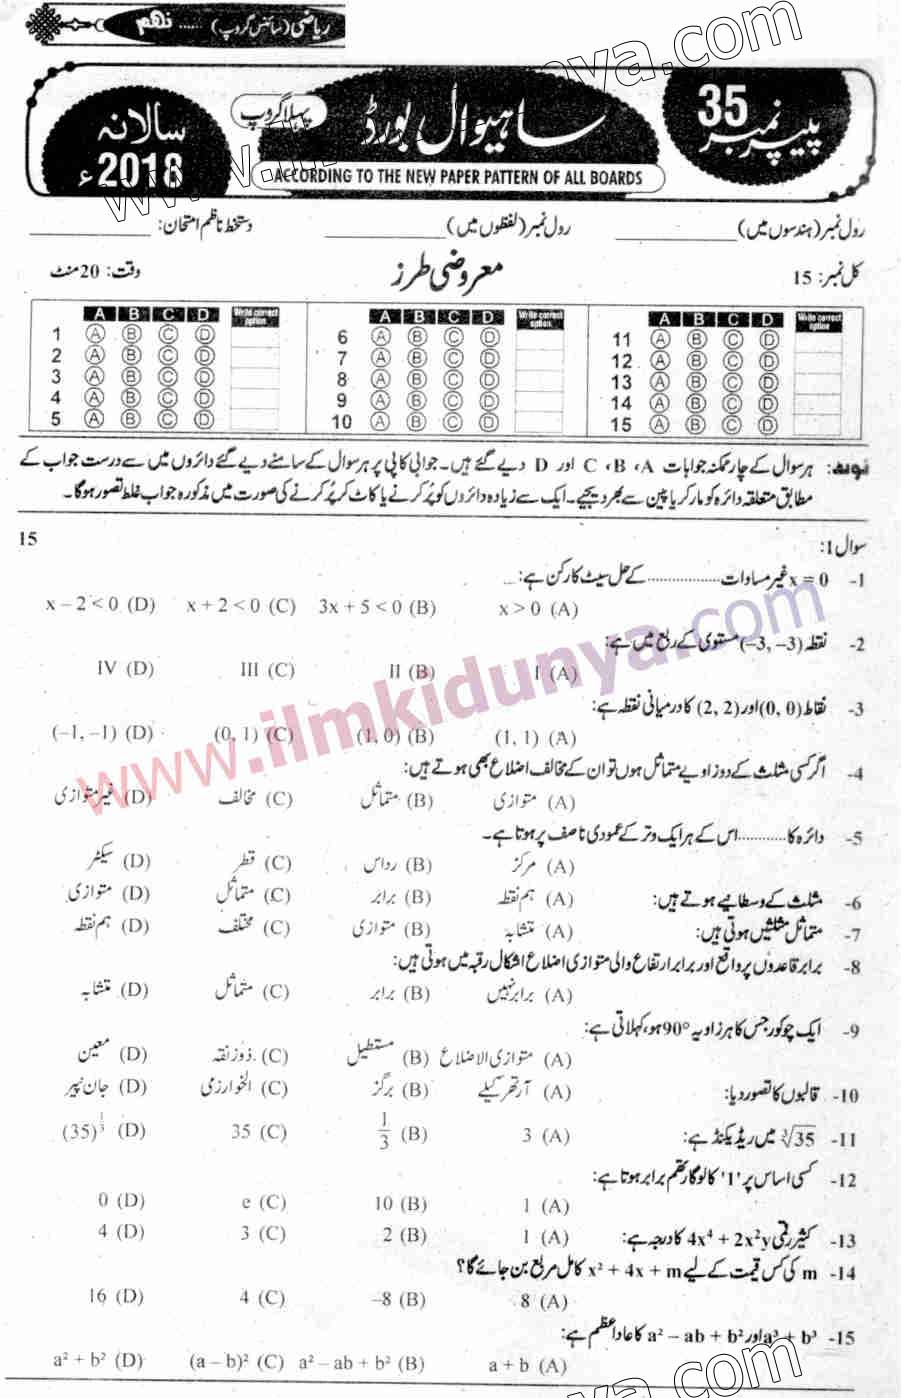 ریاضی (سائنس گروپ) ...... نہم
پیپر نمبر 35
ساہیوال بورڈ
پہلا گروپ
سالانہ 2018ء
ACCORDING TO THE NEW PAPER PATTERN OF ALL BOARDS
رول نمبر (ہندسوں میں) ____________ رول نمبر (لفظوں میں) ____________ دستخط ناظم امتحان: ____________
کل نمبر: 15 معروضی طرز وقت: 20 منٹ
A B C D Write correct option A B C D Write correct option A B C D Write correct option
1 A B C D 6 A B C D 11 A B C D
2 A B C D 7 A B C D 12 A B C D
3 A B C D 8 A B C D 13 A B C D
4 A B C D 9 A B C D 14 A B C D
5 A B C D 10 A B C D 15 A B C D
نوٹ: ہر سوال کے چار ممکنہ جوابات A، B، C اور D دیے گئے ہیں۔ جوابی کاپی پر ہر سوال کے سامنے دیے گئے دائروں میں سے درست جواب کے
مطابق متعلقہ دائرہ کو مارکر یا پین سے بھر دیجیے۔ ایک سے زیادہ دائروں کو پُر کرنے یا کاٹ کر پُر کرنے کی صورت میں مذکورہ جواب غلط تصور ہوگا۔
سوال 1: 15
1- x = 0 غیر مساوات .............. کے حل سیٹ کا رکن ہے:
(A) x > 0 (B) 3x + 5 < 0 (C) x + 2 < 0 (D) x – 2 < 0
2- نقطہ (–3, –3) مستوی کے ربع میں ہے:
(A) I (B) II (C) III (D) IV
3- نقاط (0, 0) اور (2, 2) کا درمیانی نقطہ ہے:
(A) (1, 1) (B) (1, 0) (C) (0, 1) (D) (–1, –1)
4- اگر کسی مثلث کے دو زاویے متماثل ہوں تو ان کے مخالف اضلاع بھی ہوتے ہیں:
(A) متوازی (B) متماثل (C) مخالف (D) غیر متوازی
5- دائرہ کا ........... اس کے ہر ایک وتر کے عمودی ناصف پر ہوتا ہے۔
(A) مرکز (B) رداس (C) قطر (D) سیکٹر
6- مثلث کے وسطانیے ہوتے ہیں: (A) ہم نقطہ (B) برابر (C) متماثل (D) متوازی
7- متماثل مثلثیں ہوتی ہیں: (A) متشابہ (B) متوازی (C) مختلف (D) ہم نقطہ
8- برابر قاعدوں پر واقع اور برابر ارتفاع والی متوازی اضلاع اشکال رقبہ میں ہوتی ہیں:
(A) برابر نہیں (B) برابر (C) متماثل (D) متشابہ
9- ایک چوکور جس کا ہر زاویہ 90° ہو، کہلاتی ہے:
(A) متوازی الاضلاع (B) مستطیل (C) ذوزنقہ (D) معین
10- قالبوں کا تصور دیا: (A) آرتھر کیلے (B) برگز (C) الخوارزمی (D) جان نیپیر
11- ∛35 میں ریڈیکنڈ ہے: (A) 3 (B) 1/3 (C) 35 (D) (35)^(1/3)
12- کسی اساس پر '1' کا لوگارتھم برابر ہوتا ہے:
(A) 1 (B) 10 (C) e (D) 0
13- کثیر رقمی 4x⁴ + 2x²y کا درجہ ہے: (A) 1 (B) 2 (C) 3 (D) 4
14- m کی کس قیمت کے لیے x² + 4x + m کامل مربع بن جائے گا؟
(A) 8 (B) –8 (C) 4 (D) 16
15- a³ + b³ اور a² – ab + b² کا عاد اعظم ہے:
(A) a + b (B) a² – ab + b² (C) (a – b)² (D) a² + b²
www.ilmkidunya.com